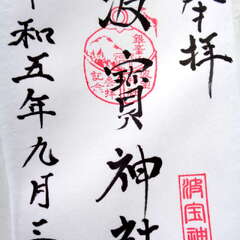 奉拝
波寳神社
令和五年九月三
波宝神